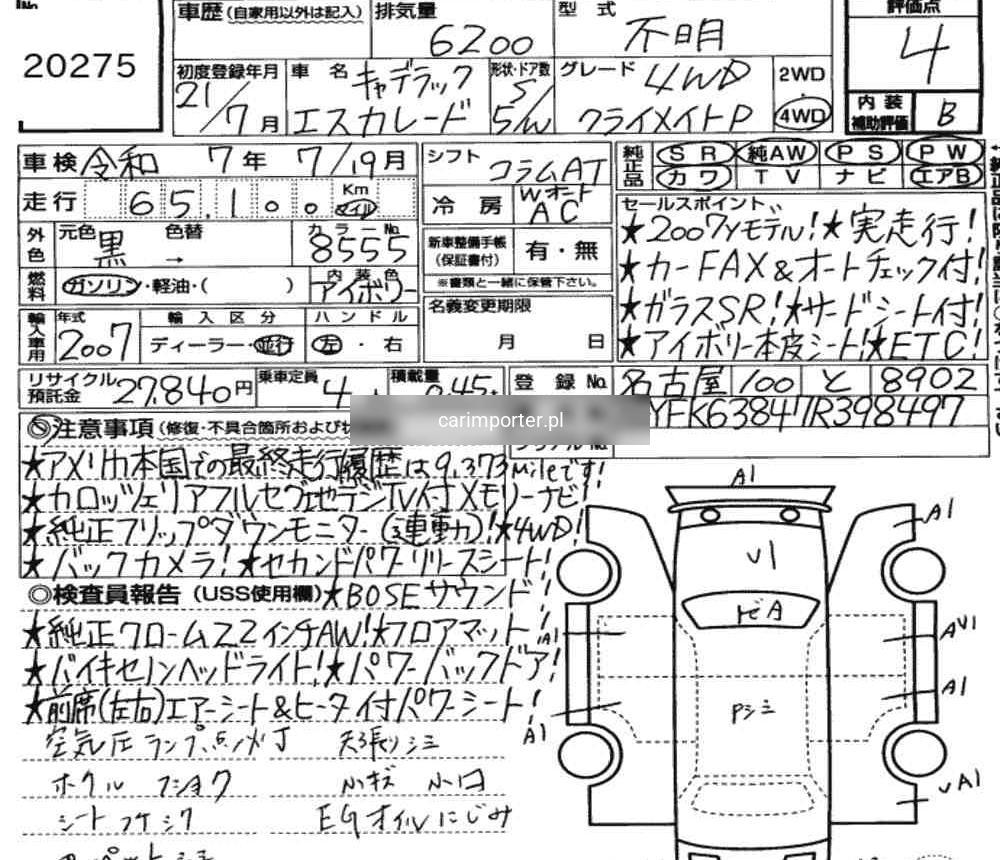 No.
20275
車歴(自家用以外は記入) 排気量 型式 評価点
6200 不明 4
初度登録年月 車名 形状・ドア数 グレード 2WD
21/7月 キャデラック エスカレード S/5W 4WD クライメイトP 4WD
内装補助評価 B
車検 令和 7年 7/19月
シフト コラムAT
純正品 SR 純AW PS PW
カワ TV ナビ エアB
走行 65,100 Km マイル
冷房 WオートAC
セールスポイント
★2007yモデル!★実走行!
★カーFAX&オートチェック付!
★ガラスSR!★サードシート付!
★アイボリー本皮シート!★ETC!
外色 元色 黒 → 色替 カラーNo. 8555
新車整備手帳(保証書付) 有・無
※書類と一緒に保管下さい。
燃料 ガソリン・軽油・( ) 内装色 アイボリー
名義変更期限
月 日
輸入車用 年式 2007 輸入区分 ディーラー・並行 ハンドル 左・右
リサイクル預託金 27,840円 乗車定員 4 積載量 0.45
登録No. 名古屋 100 と 8902
YFK63847R398497
carimporter.pl
注意事項(修復・不具合箇所および
★アメリカ本国での最終走行履歴は9,373Mileです!
★カロッツェリアフルセグ地デジTV付メモリーナビ!
★純正フリップダウンモニター(3連動)!★4WD!
★バックカメラ!★セカンドパワーリリースシート!
◎検査員報告(USS使用欄)★BOSEサウンド!
★純正クローム22インチAW!★フロアマット!
★バイキセノンヘッドライト!★パワーバックドア!
★前席(左右)エアーシート&ヒーター付パワーシート!
空気圧ランプ点灯 天張りシミ
小キズ 小凹
EGオイルにじみ
A1
A1
U1
ヒA
A1
AU1
A1
A1
Pシミ
UA1